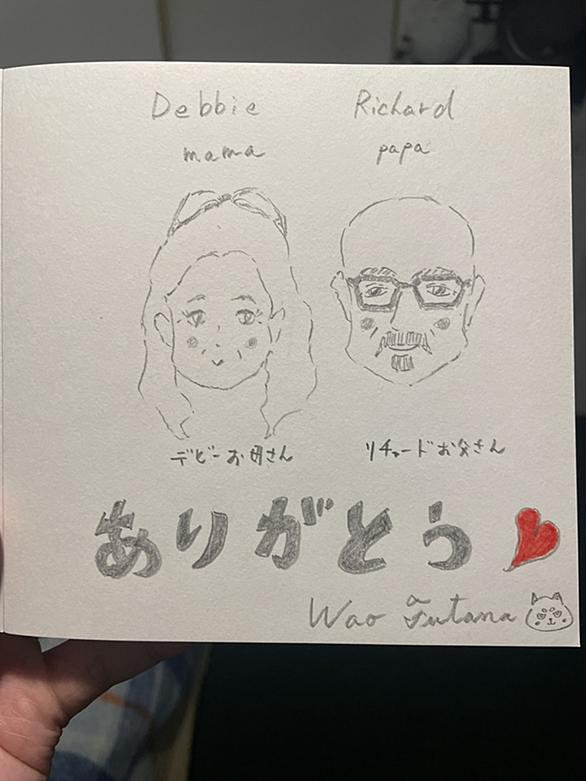 Debbie Richard
mama papa
デビーお母さん リチャードお父さん
ありがとう
Wao Futana